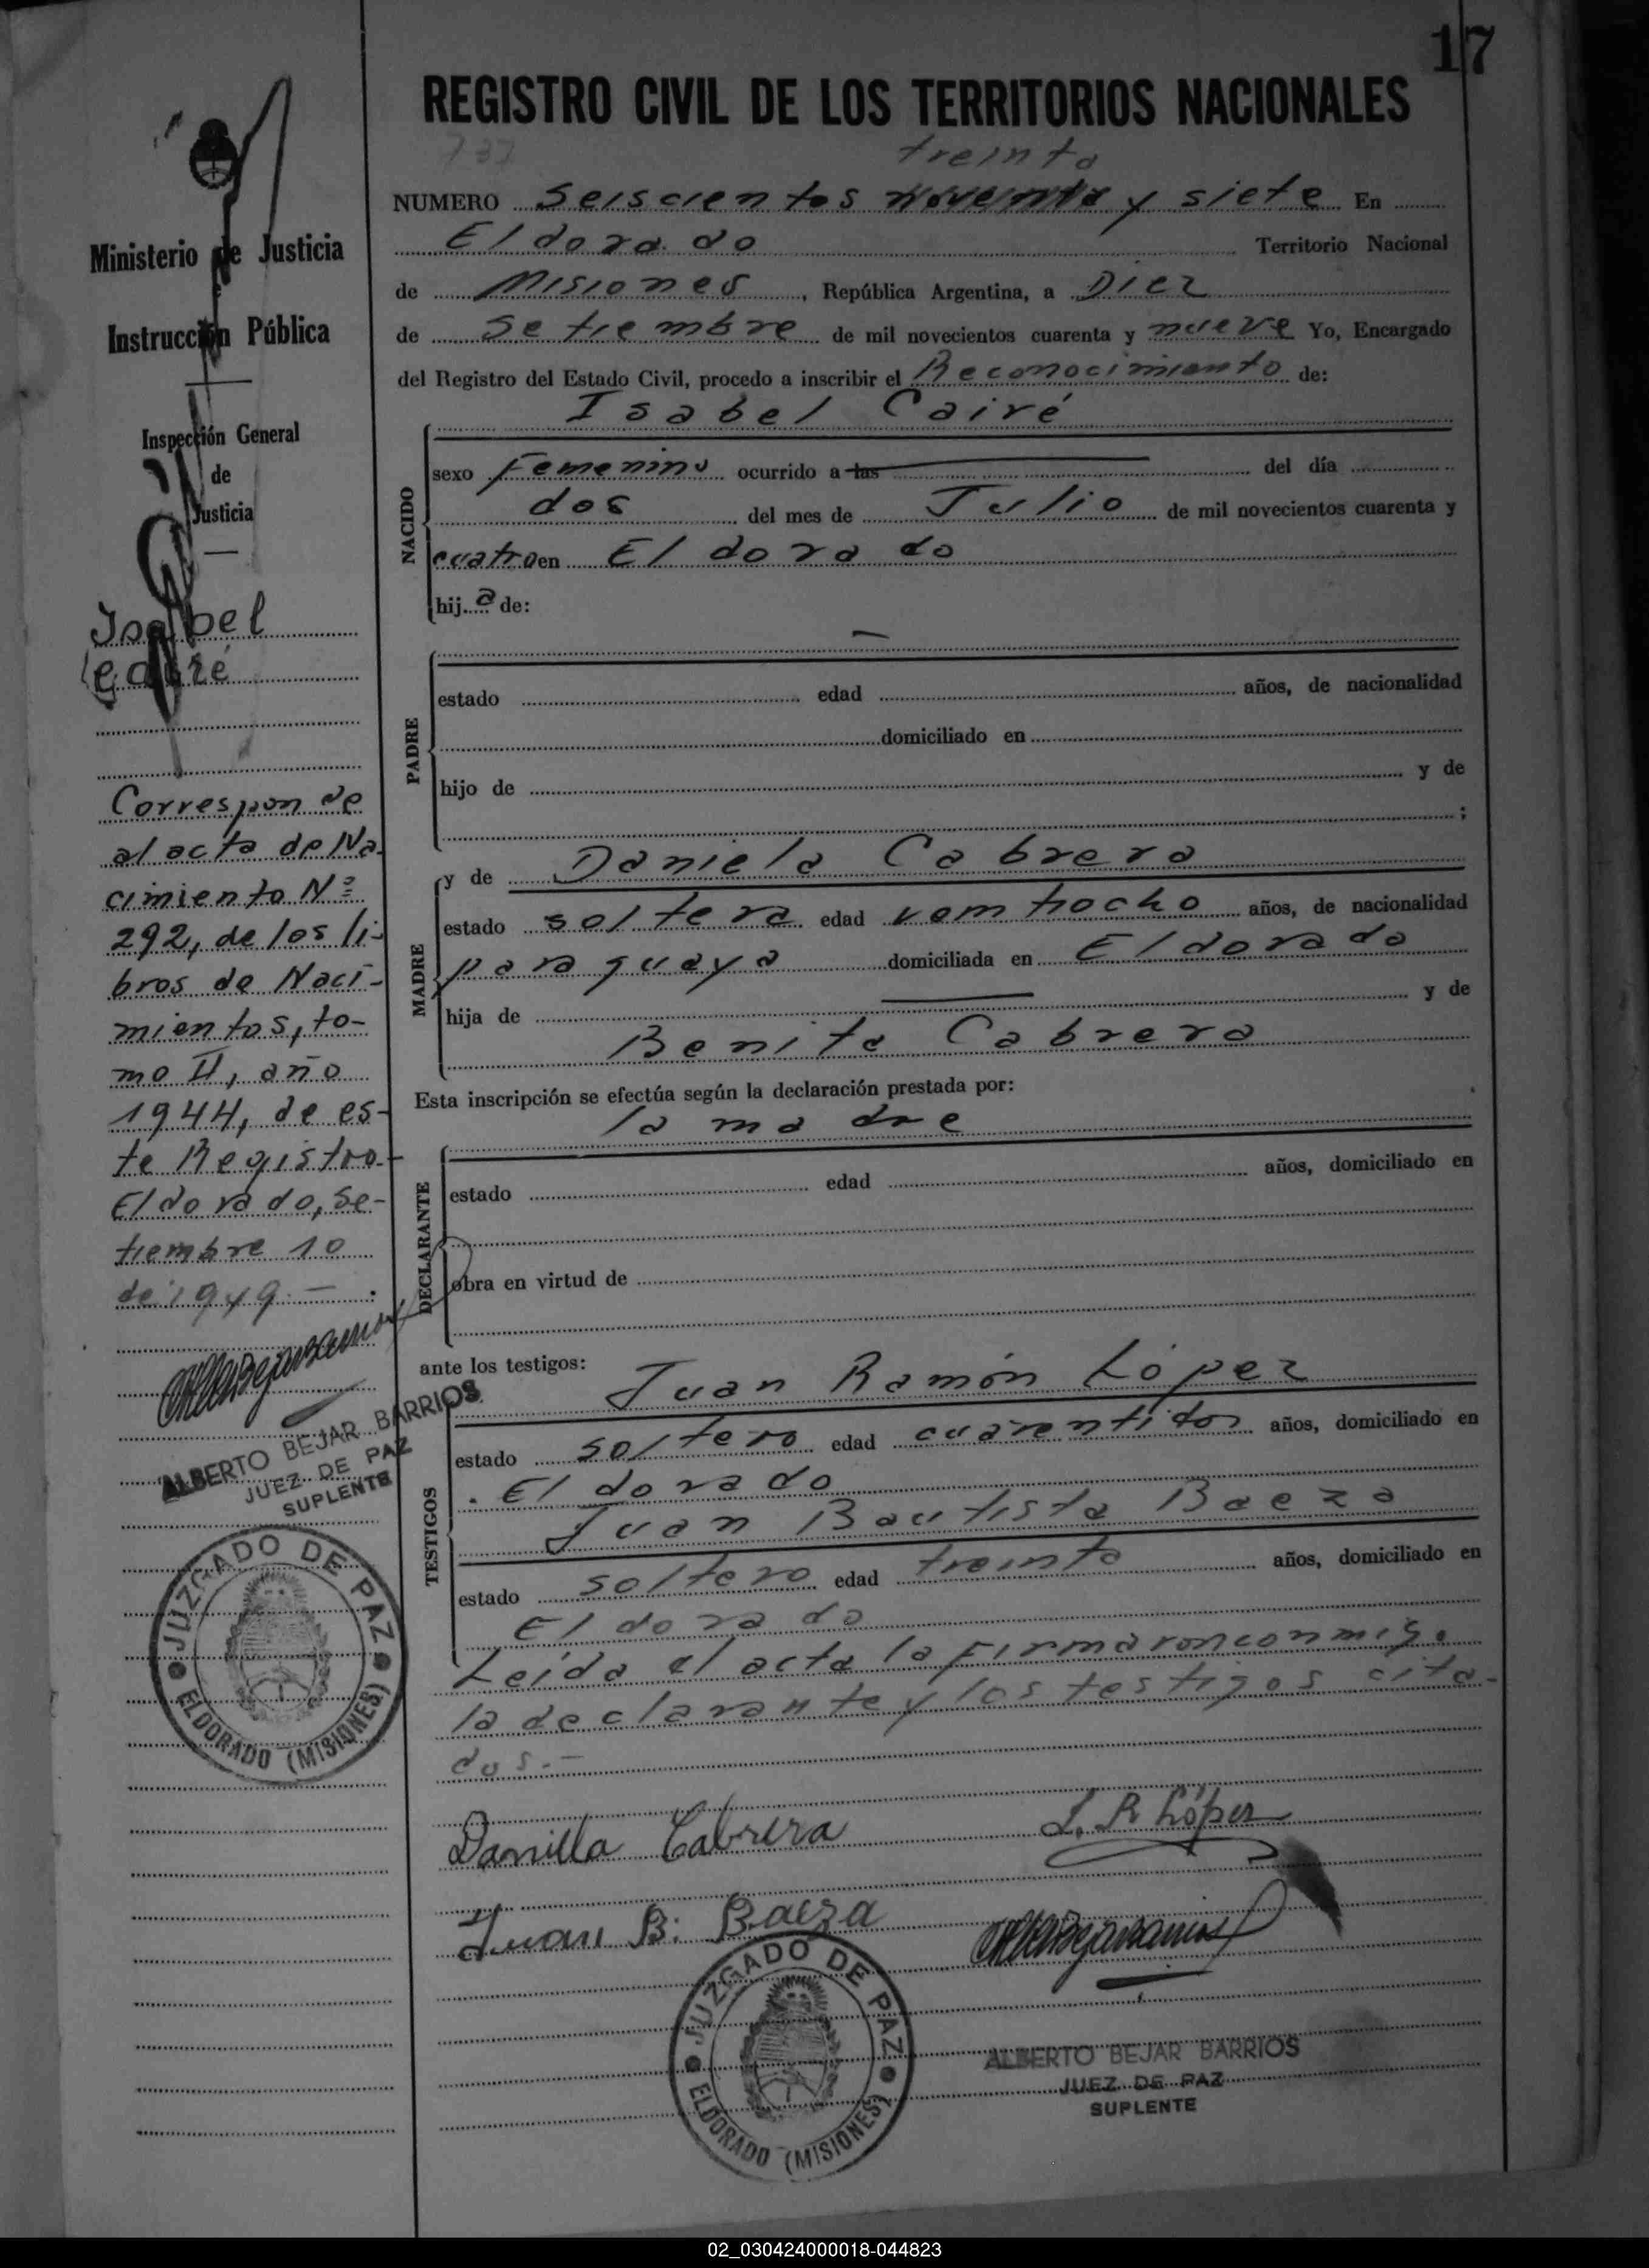 17
REGISTRO CIVIL DE LOS TERRITORIOS NACIONALES
737
treinta
NUMERO Seiscientos noventa y siete En
Eldorado Territorio Nacional
de Misiones, República Argentina, a Diez
de Setiembre de mil novecientos cuarenta y nueve Yo, Encargado
del Registro del Estado Civil, procedo a inscribir el Reconocimiento de:
Isabel Cairé
NACIDO
sexo Femenino ocurrido a las del día
dos del mes de Julio de mil novecientos cuarenta y
cuatro en Eldorado
hij a de:
PADRE
estado edad años, de nacionalidad
domiciliado en
hijo de y de
;
MADRE
y de Daniela Cabrera
estado soltera edad veintiocho años, de nacionalidad
paraguaya domiciliada en Eldorado
hija de y de
Benita Cabrera
Esta inscripción se efectúa según la declaración prestada por:
la madre
DECLARANTE
estado edad años, domiciliado en
obra en virtud de
ante los testigos: Juan Ramón López
TESTIGOS
estado soltero edad cuarentidos años, domiciliado en
Eldorado
Juan Bautista Baeza
estado soltero edad treinta años, domiciliado en
Eldorado
Leida el acta la firmaron conmigo
la declarante y los testigos cita-
dos.-
Danilla Cabrera
J. R López
Juan B. Baeza
JUZGADO DE PAZ
ELDORADO (MISIONES)
ALBERTO BEJAR BARRIOS
JUEZ DE PAZ
SUPLENTE
Ministerio de Justicia
Instrucción Pública
Inspección General
de
Justicia
Isabel
Cairé
Corresponde
al acta de Na-
cimiento Nº
292, de los li-
bros de Naci-
mientos, to-
mo II, año
1944, de es-
te Registro.-
Eldorado, Se-
tiembre 10
de 1949.-
ALBERTO BEJAR BARRIOS
JUEZ DE PAZ
SUPLENTE
JUZGADO DE PAZ
ELDORADO (MISIONES)
02_030424000018-044823